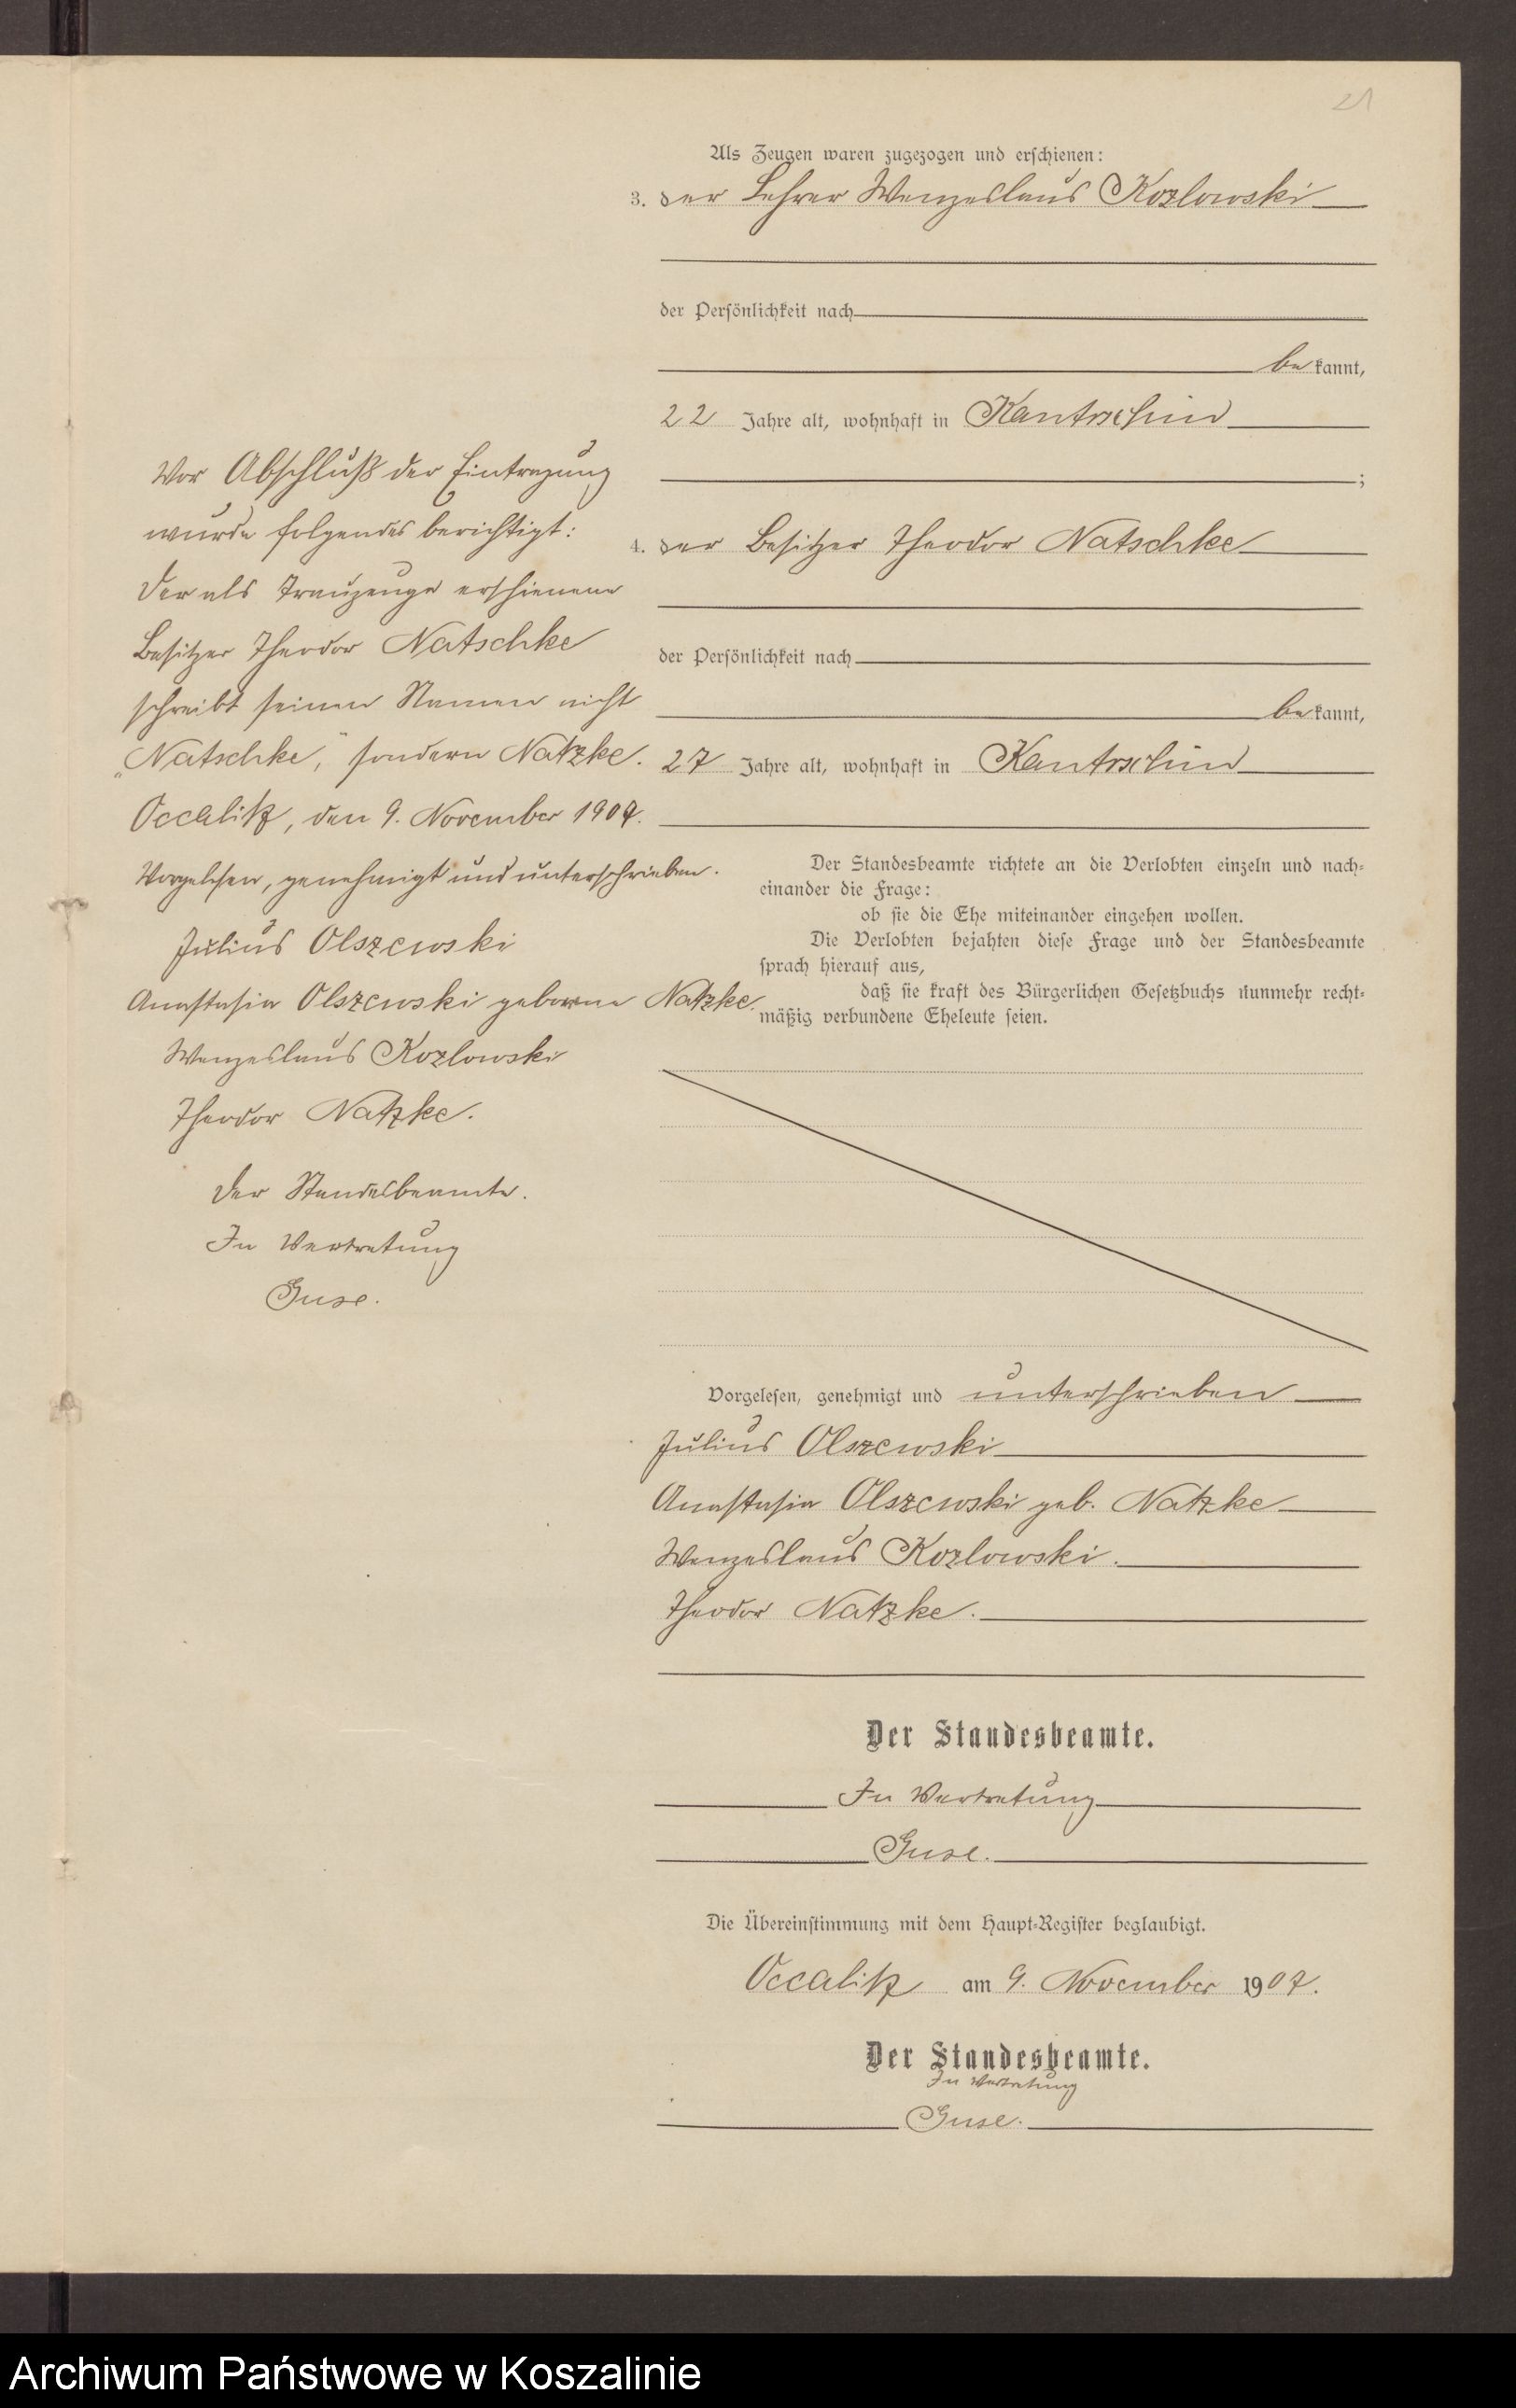 21
Als Zeugen waren zugezogen und erschienen:
3. der Lehrer Wenzeslaus Kozlowski
der Persönlichkeit nach
be kannt,
22 Jahre alt, wohnhaft in Kantrschin
;
4. der Besitzer Theodor Natschke
der Persönlichkeit nach
be kannt,
27 Jahre alt, wohnhaft in Kantrschin
Der Standesbeamte richtete an die Verlobten einzeln und nach-
einander die Frage:
ob sie die Ehe miteinander eingehen wollen.
Die Verlobten bejahten diese Frage und der Standesbeamte
sprach hierauf aus,
daß sie kraft des Bürgerlichen Gesetzbuchs nunmehr recht-
mäßig verbundene Eheleute seien.
Vor Abschluß der Eintragung
wurde folgendes berichtigt:
Der als Trauzeuge erschienene
Besitzer Theodor Natschke
schreibt seinen Namen nicht
„Natschke," sondern Natzke.
Occalitz, den 9. November 1907.
Vorgelesen, genehmigt und unterschrieben.
Julius Olszewski
Anastasia Olszewski geborene Natzke.
Wenzeslaus Kozlowski
Theodor Natzke.
Der Standesbeamte.
In Vertretung
Guse.
Vorgelesen, genehmigt und unterschrieben
Julius Olszewski
Anastasia Olszewski geb. Natzke
Wenzeslaus Kozlowski.
Theodor Natzke.
Der Standesbeamte.
In Vertretung
Guse.
Die Übereinstimmung mit dem Haupt-Register beglaubigt.
Occalitz am 9. November 1907.
Der Standesbeamte.
In Vertretung
Guse.
Archiwum Państwowe w Koszalinie